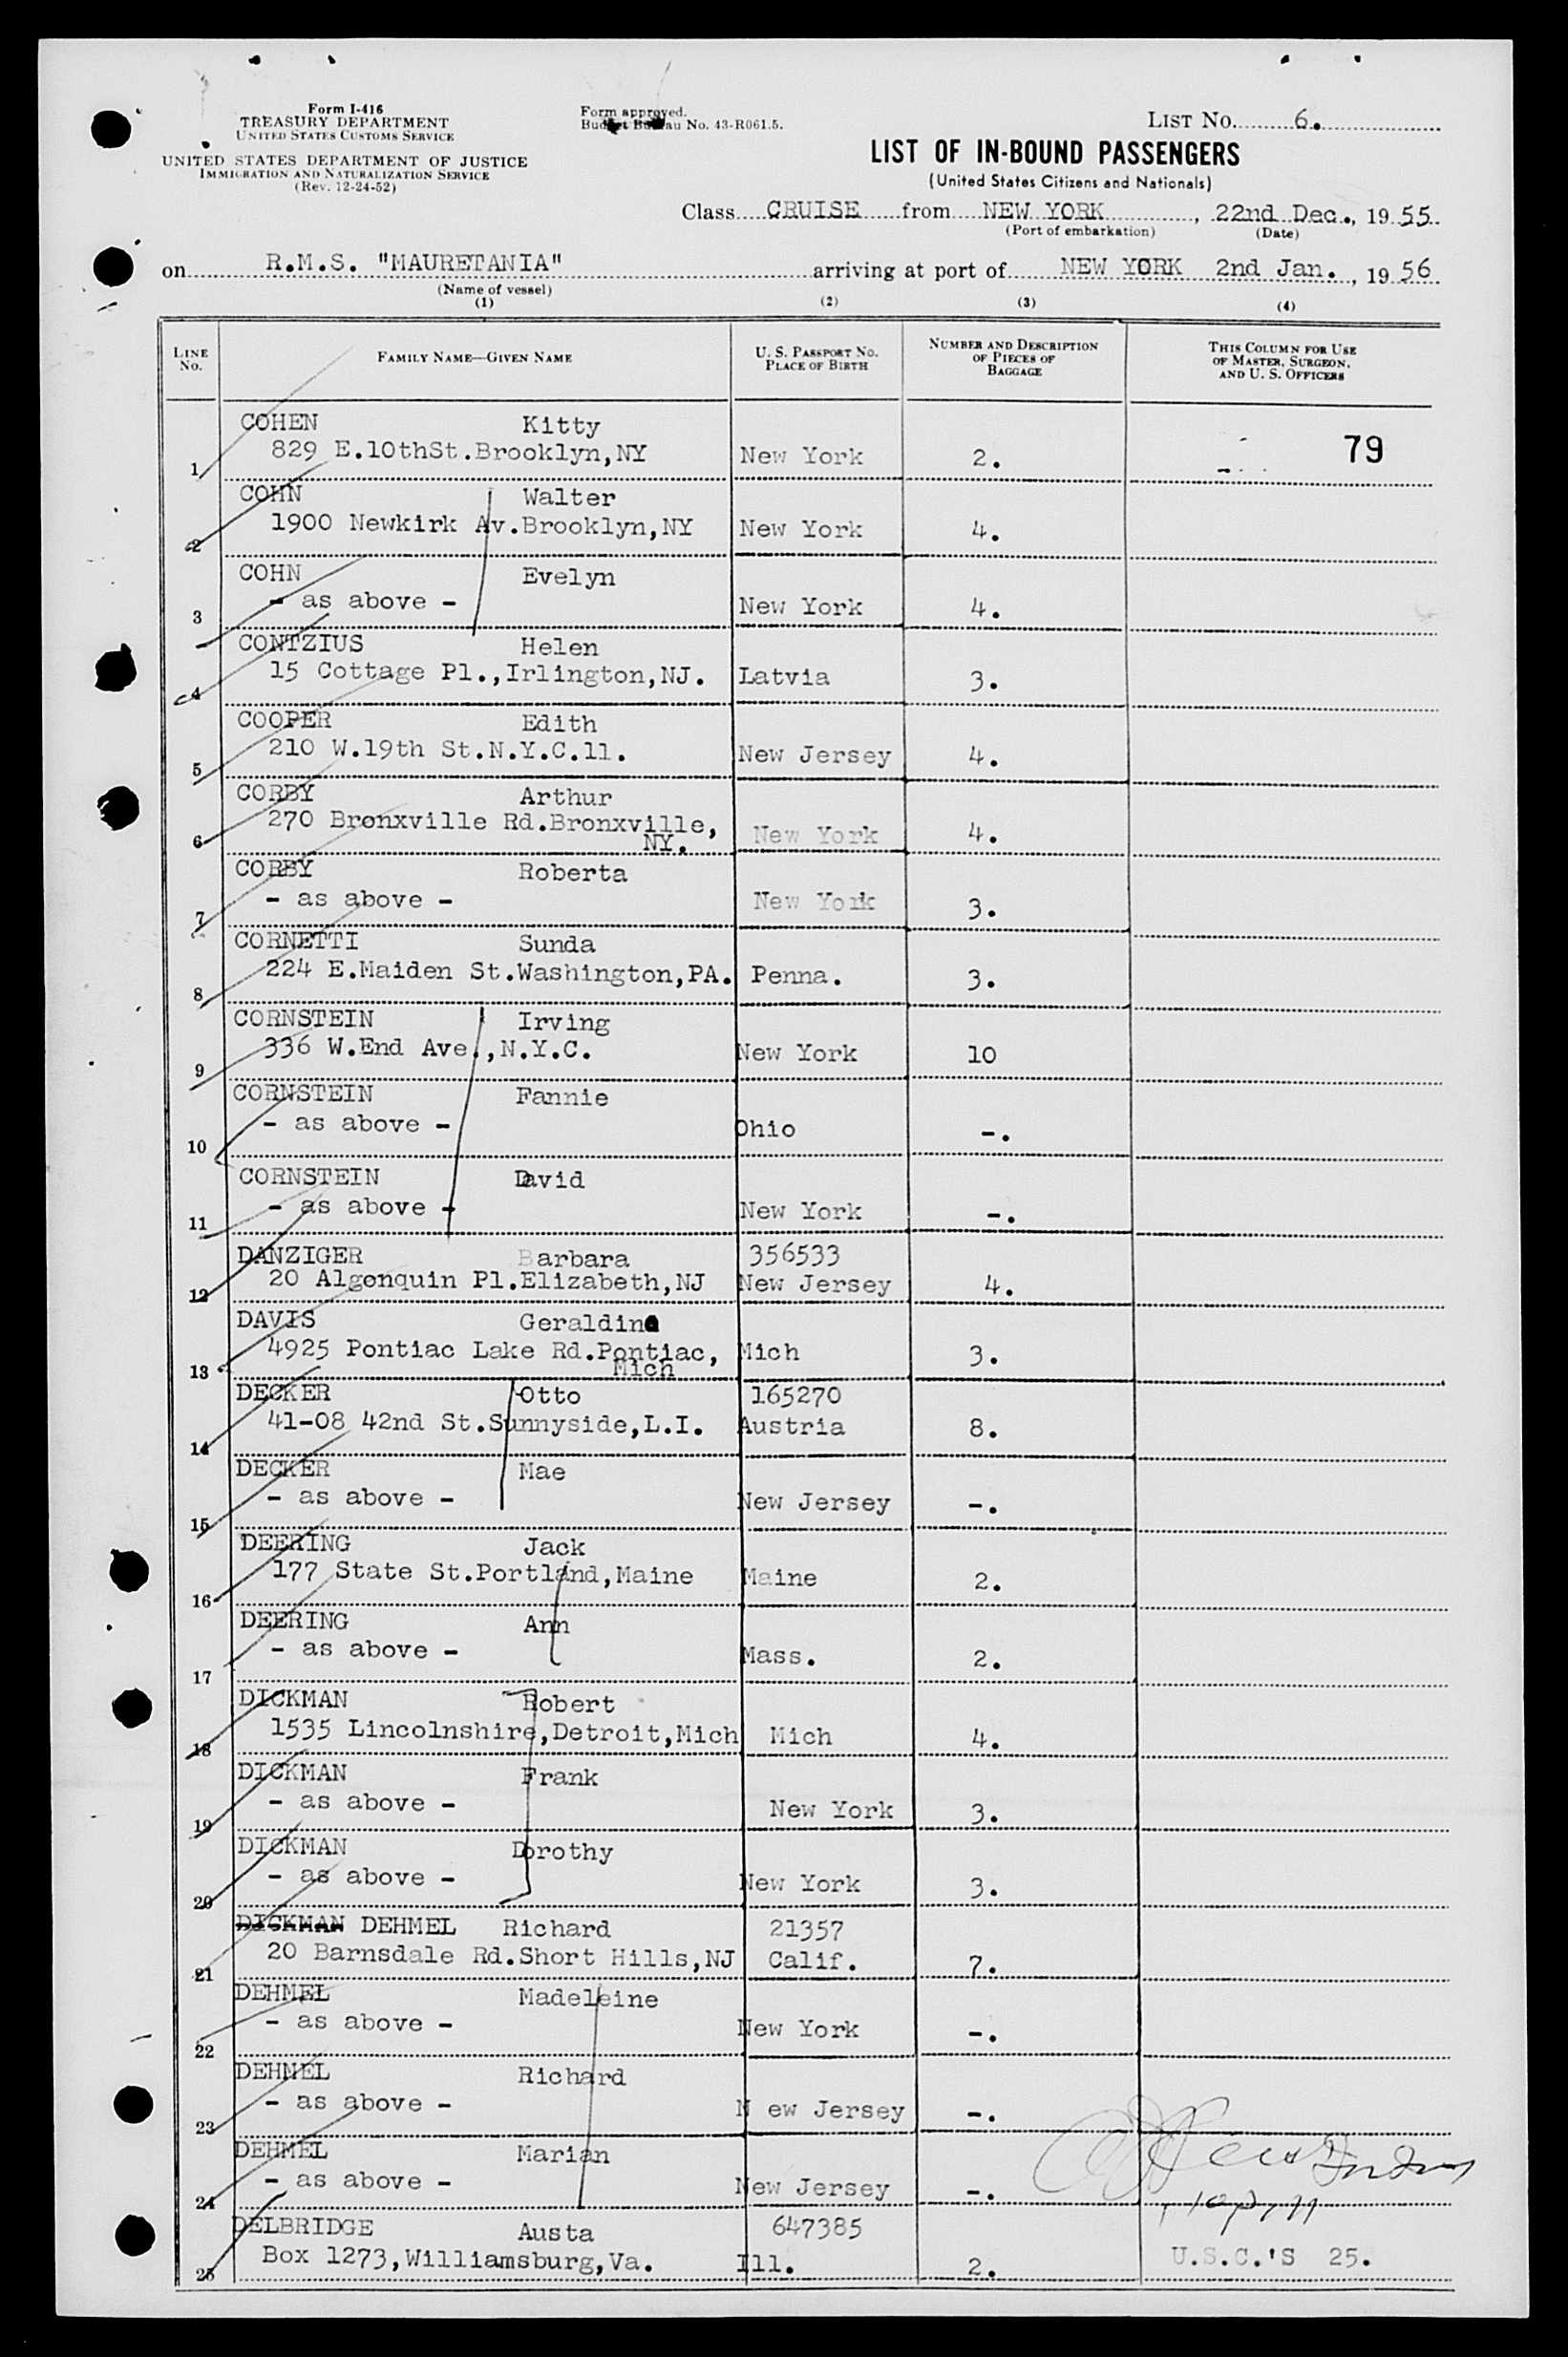 Form I-416
TREASURY DEPARTMENT
UNITED STATES CUSTOMS SERVICE
UNITED STATES DEPARTMENT OF JUSTICE
IMMIGRATION AND NATURALIZATION SERVICE
(Rev. 12-24-52)
Form approved.
Budget Bureau No. 43-R061.5.
LIST NO. 6.
LIST OF IN-BOUND PASSENGERS
(United States Citizens and Nationals)
Class CRUISE from NEW YORK, 22nd Dec., 1955
(Port of embarkation) (Date)
on R.M.S. "MAURETANIA" arriving at port of NEW YORK 2nd Jan., 1956
(Name of vessel)
(1) (2) (3) (4)
LINE NO. FAMILY NAME—GIVEN NAME U. S. PASSPORT NO. PLACE OF BIRTH NUMBER AND DESCRIPTION OF PIECES OF BAGGAGE THIS COLUMN FOR USE OF MASTER, SURGEON, AND U. S. OFFICERS
COHEN Kitty
1 829 E.10thSt.Brooklyn,NY New York 2. 79
COHN Walter
2 1900 Newkirk Av.Brooklyn,NY New York 4.
COHN Evelyn
3 - as above - New York 4.
CONTZIUS Helen
4 15 Cottage Pl.,Irlington,NJ. Latvia 3.
COOPER Edith
5 210 W.19th St.N.Y.C.11. New Jersey 4.
CORBY Arthur
6 270 Bronxville Rd.Bronxville, NY. New York 4.
CORBY Roberta
7 - as above - New York 3.
CORNETTI Sunda
8 224 E.Maiden St.Washington,PA. Penna. 3.
CORNSTEIN Irving
9 336 W.End Ave.,N.Y.C. New York 10
CORNSTEIN Fannie
10 - as above - Ohio -.
CORNSTEIN David
11 - as above - New York -.
DANZIGER Barbara 356533
12 20 Algonquin Pl.Elizabeth,NJ New Jersey 4.
DAVIS Geraldine
13 4925 Pontiac Lake Rd.Pontiac, Mich Mich 3.
DECKER Otto 165270
14 41-08 42nd St.Sunnyside,L.I. Austria 8.
DECKER Mae
15 - as above - New Jersey -.
DEERING Jack
16 177 State St.Portland,Maine Maine 2.
DEERING Ann
17 - as above - Mass. 2.
DICKMAN Robert
18 1535 Lincolnshire,Detroit,Mich Mich 4.
DICKMAN Frank
19 - as above - New York 3.
DICKMAN Dorothy
20 - as above - New York 3.
DICKMAN DEHMEL Richard 21357
21 20 Barnsdale Rd.Short Hills,NJ Calif. 7.
DEHMEL Madeleine
22 - as above - New York -.
DEHMEL Richard
23 - as above - N ew Jersey -.
DEHMEL Marian
24 - as above - New Jersey -.
DELBRIDGE Austa 647385
25 Box 1273,Williamsburg,Va. Ill. 2. U.S.C.'S 25.